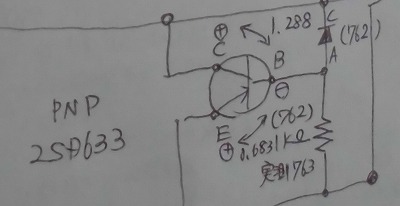 ⊕ 1.288
C
C
(762)
B
A
PNP
2SD633
⊖
E
(762)
⊕ 0.6831KΩ
実測763